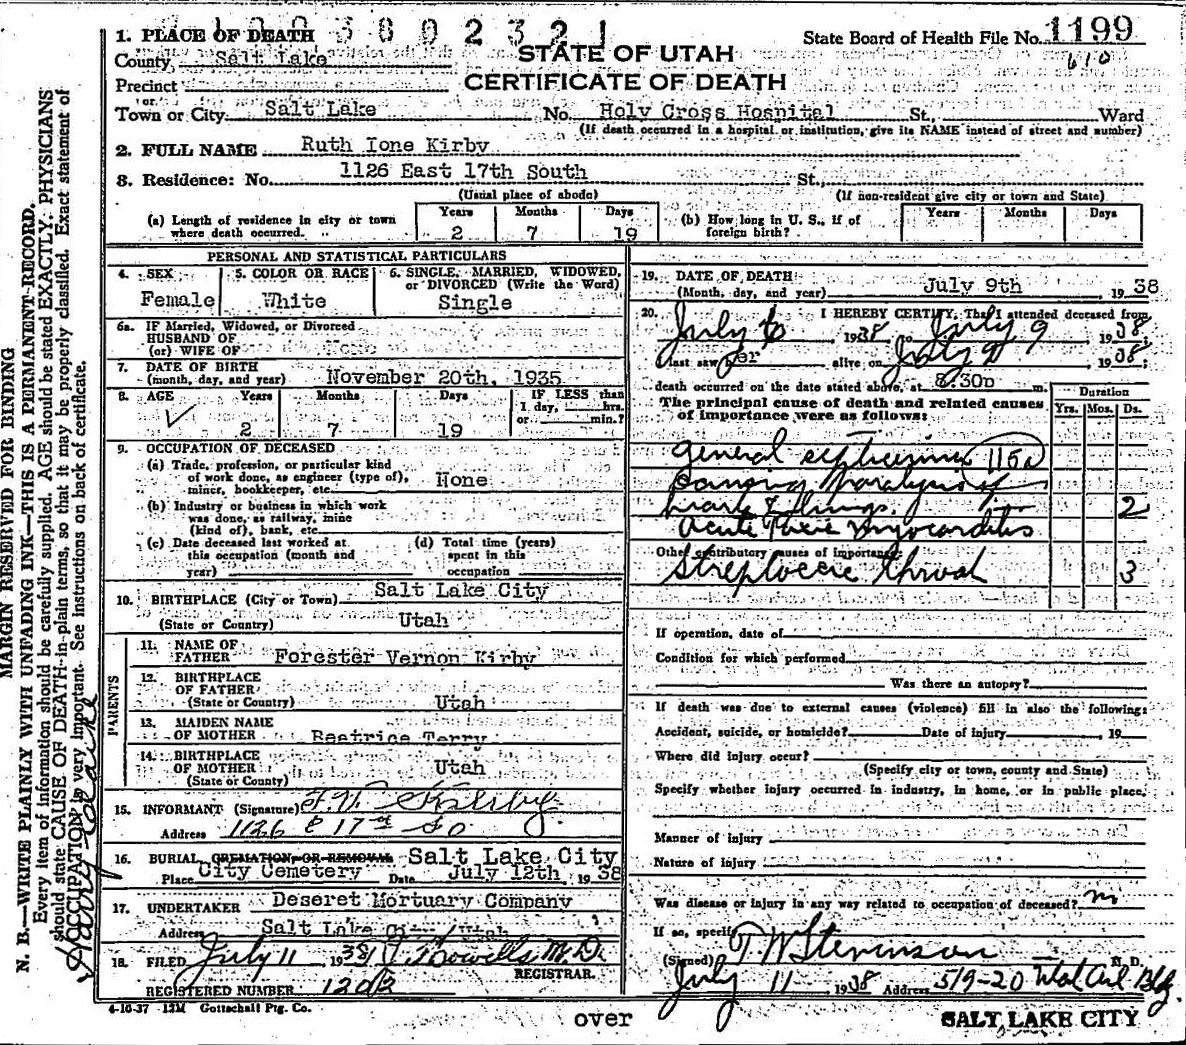 10038002321
1. PLACE OF DEATH
State Board of Health File No. 1199
610
County Salt Lake
STATE OF UTAH
CERTIFICATE OF DEATH
Precinct
or
Town or City Salt Lake No. Holy Cross Hospital St., Ward
(If death occurred in a hospital or institution, give its NAME instead of street and number)
2. FULL NAME Ruth Ione Kirby
3. Residence: No. 1126 East 17th South St.,
(Usual place of abode) (If non-resident give city or town and State)
(a) Length of residence in city or town where death occurred. Years 2 Months 7 Days 19
(b) How long in U. S., if of foreign birth? Years Months Days
PERSONAL AND STATISTICAL PARTICULARS
4. SEX Female
5. COLOR OR RACE White
6. SINGLE, MARRIED, WIDOWED, or DIVORCED (Write the Word) Single
6a. IF Married, Widowed, or Divorced
HUSBAND OF
(or) WIFE OF
7. DATE OF BIRTH
(month, day, and year) November 20th, 1935
8. AGE Years 2 Months 7 Days 19
IF LESS than 1 day, hrs. or min.?
9. OCCUPATION OF DECEASED
(a) Trade, profession, or particular kind
of work done, as engineer (type of), None
miner, bookkeeper, etc.
(b) Industry or business in which work
was done, as railway, mine
(kind of), bank, etc.
(c) Date deceased last worked at
this occupation (month and
year)
(d) Total time (years)
spent in this
occupation
10. BIRTHPLACE (City or Town) Salt Lake City
(State or Country) Utah
PARENTS
11. NAME OF
FATHER Forester Vernon Kirby
12. BIRTHPLACE
OF FATHER
(State or Country) Utah
13. MAIDEN NAME
OF MOTHER Beatrice Terry
14. BIRTHPLACE
OF MOTHER Utah
(State or County)
15. INFORMANT (Signature) F. V. Kirby
Address 1126 E 17th So
16. BURIAL, CREMATION, OR REMOVAL Salt Lake City
Place City Cemetery Date July 12th, 1938
17. UNDERTAKER Deseret Mortuary Company
Address Salt Lake City, Utah
18. FILED July 11 1938 M.D.
REGISTRAR.
REGISTERED NUMBER 1202
4-10-37 12M Gottschall Ptg. Co.
19. DATE OF DEATH
(Month, day, and year) July 9th, 1938
20. I HEREBY CERTIFY, That I attended deceased from
July 6 1938 to July 9, 1938,
last saw her alive on July 9, 1938,
death occurred on the date stated above, at 8:30p m.
The principal cause of death and related causes
of importance were as follows:
Duration
Yrs. Mos. Ds.
General septicemia 115a
paralysis of
heart & lungs. 2
Acute Toxic Myocarditis
Other contributory causes of importance:
Streptoccic throat 3
If operation, date of
Condition for which performed
Was there an autopsy?
If death was due to external causes (violence) fill in also the following:
Accident, suicide, or homicide? Date of injury , 19
Where did injury occur?
(Specify city or town, county and State)
Specify whether injury occurred in industry, in home, or in public place.
Manner of injury
Nature of injury
Was disease or injury in any way related to occupation of deceased? no
If so, specify
(Signed) T W Stevenson M. D.
July 11 1938 Address 519-20 Bldg.
over
SALT LAKE CITY
MARGIN RESERVED FOR BINDING
N. B.—WRITE PLAINLY WITH UNFADING INK—THIS IS A PERMANENT RECORD.
Every item of information should be carefully supplied. AGE should be stated EXACTLY. PHYSICIANS
should state CAUSE OF DEATH in plain terms, so that it may be properly classified. Exact statement of
OCCUPATION is very important. See instructions on back of certificate.